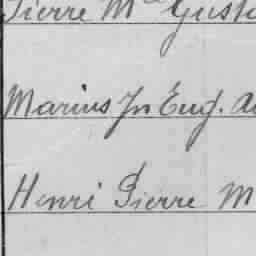 Pierre Mie Gusta
Marius Jn Eug. A
Henri Pierre M